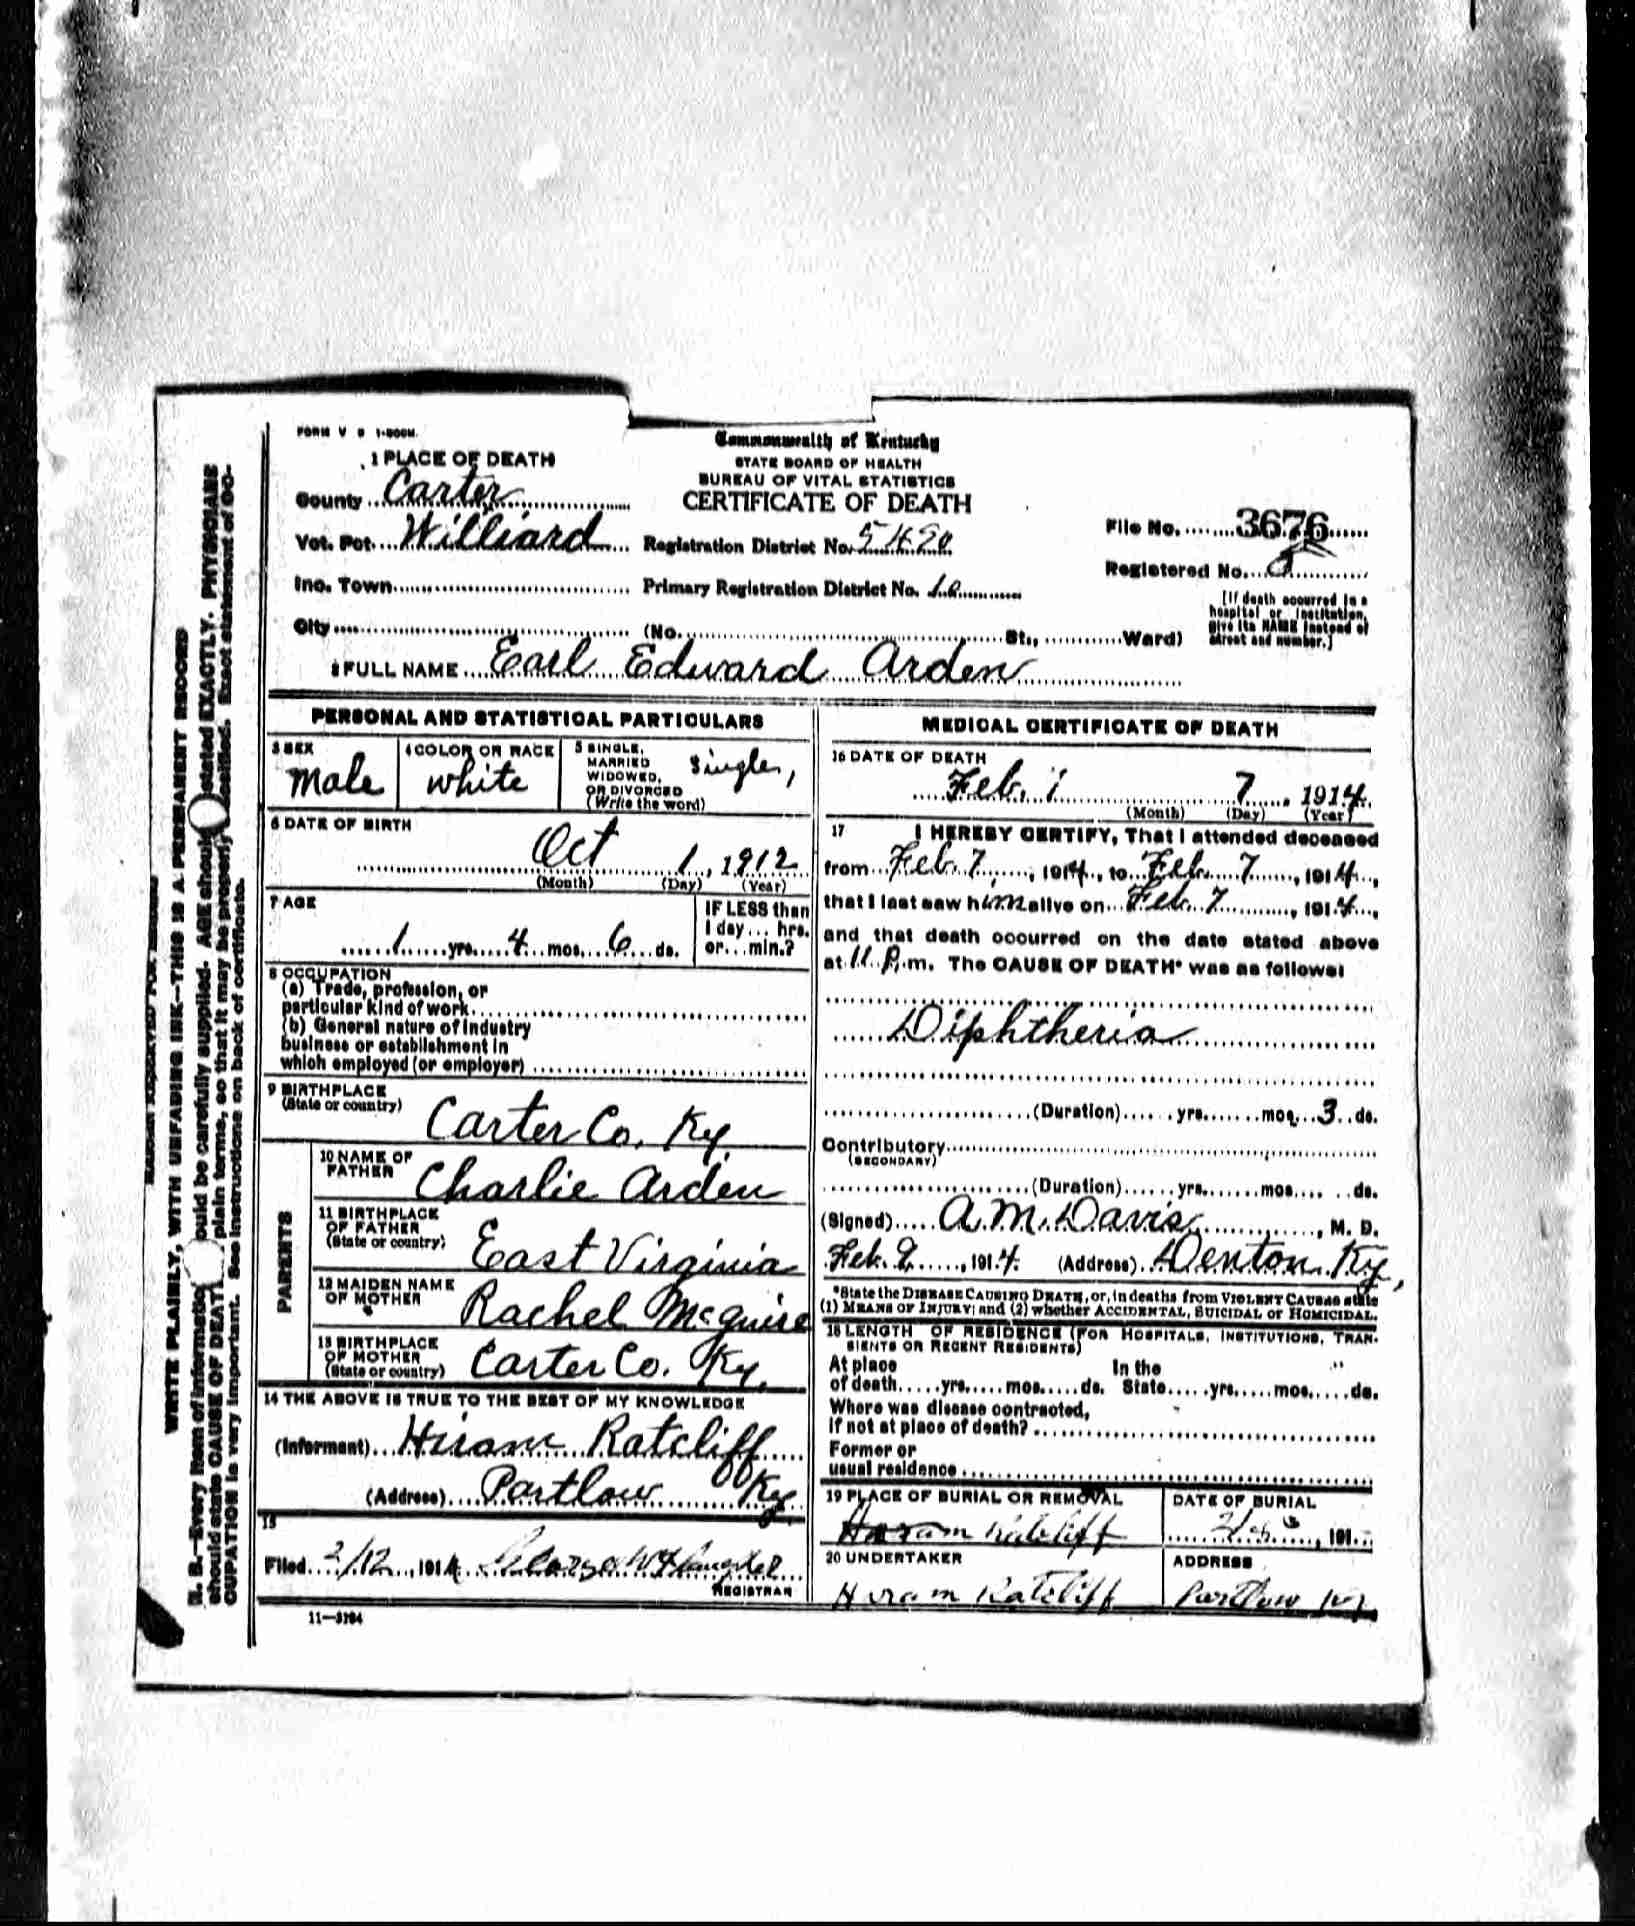 FORM V S 1-500M.
Commonwealth of Kentucky
STATE BOARD OF HEALTH
BUREAU OF VITAL STATISTICS
CERTIFICATE OF DEATH
1 PLACE OF DEATH
County Carter
Vot. Pct. Williard Registration District No. 5490
File No. 3676
Registered No. 8
Inc. Town Primary Registration District No.
City (No. St., Ward)
[If death occurred in a
hospital or institution,
give its NAME instead of
street and number.]
2 FULL NAME Earl Edward Arden
PERSONAL AND STATISTICAL PARTICULARS
3 SEX
Male
4 COLOR OR RACE
White
5 SINGLE,
MARRIED
WIDOWED,
OR DIVORCED
(Write the word)
Single,
6 DATE OF BIRTH
Oct 1, 1912
(Month) (Day) (Year)
7 AGE
1 yrs. 4 mos. 6 ds.
IF LESS than
1 day... hrs.
or...min.?
8 OCCUPATION
(a) Trade, profession, or
particular kind of work
(b) General nature of industry
business or establishment in
which employed (or employer)
9 BIRTHPLACE
(State or country)
Carter Co. Ky.
PARENTS
10 NAME OF
FATHER
Charlie Arden
11 BIRTHPLACE
OF FATHER
(State or country)
East Virginia
12 MAIDEN NAME
OF MOTHER
Rachel McGuire
13 BIRTHPLACE
OF MOTHER
(State or country)
Carter Co. Ky.
14 THE ABOVE IS TRUE TO THE BEST OF MY KNOWLEDGE
(Informant) Hiram Ratcliff
(Address) Partlow Ky.
15
Filed 2/12, 1914
REGISTRAR
11-3184
MEDICAL CERTIFICATE OF DEATH
16 DATE OF DEATH
Feb. 7, 1914
(Month) (Day) (Year)
17 I HEREBY CERTIFY, That I attended deceased
from Feb. 7, 1914, to Feb. 7, 1914,
that I last saw him alive on Feb. 7, 1914,
and that death occurred on the date stated above
at 11 P.m. The CAUSE OF DEATH* was as follows:
Diphtheria
(Duration) yrs. mos. 3 ds.
Contributory
(SECONDARY)
(Duration) yrs. mos. ds.
(Signed) A.M. Davis, M. D.
Feb. 9, 1914 (Address) Denton Ky,
*State the DISEASE CAUSING DEATH, or, in deaths from VIOLENT CAUSES state
(1) MEANS OF INJURY; and (2) whether ACCIDENTAL, SUICIDAL or HOMICIDAL.
18 LENGTH OF RESIDENCE (FOR HOSPITALS, INSTITUTIONS, TRAN-
SIENTS OR RECENT RESIDENTS)
At place In the
of death yrs. mos. ds. State yrs. mos. ds.
Where was disease contracted,
if not at place of death?
Former or
usual residence
19 PLACE OF BURIAL OR REMOVAL
Hiram Ratcliff
DATE OF BURIAL
191
20 UNDERTAKER
Hiram Ratcliff
ADDRESS
Partlow Ky
WRITE PLAINLY, WITH UNFADING INK—THIS IS A PERMANENT RECORD
N. B.—Every item of information should be carefully supplied. AGE should stated EXACTLY. PHYSICIANS
should state CAUSE OF DEATH plain terms, so that it may be properly classified. Exact statement of OC-
CUPATION is very important. See instructions on back of certificate.